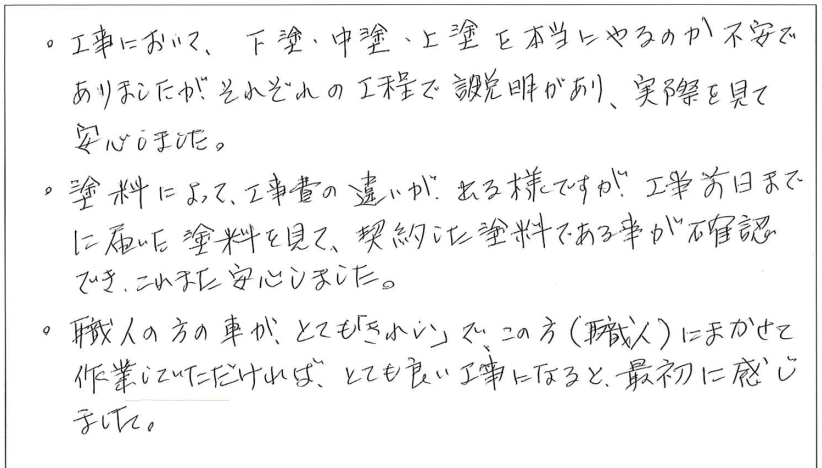 。工事において、下塗・中塗・上塗を本当にやるのか不安で
ありましたが、それぞれの工程で説明があり、実際を見て
安心しました。
。塗料によって、工事費の違いが、出る様ですが、工事前日まで
に届いた塗料を見て、契約した塗料である事が確認
でき、これまた安心しました。
。職人の方の車が、とても「きれい」で、この方(職人)にまかせて
作業していただければ、とても良い工事になると、最初に感じ
ました。